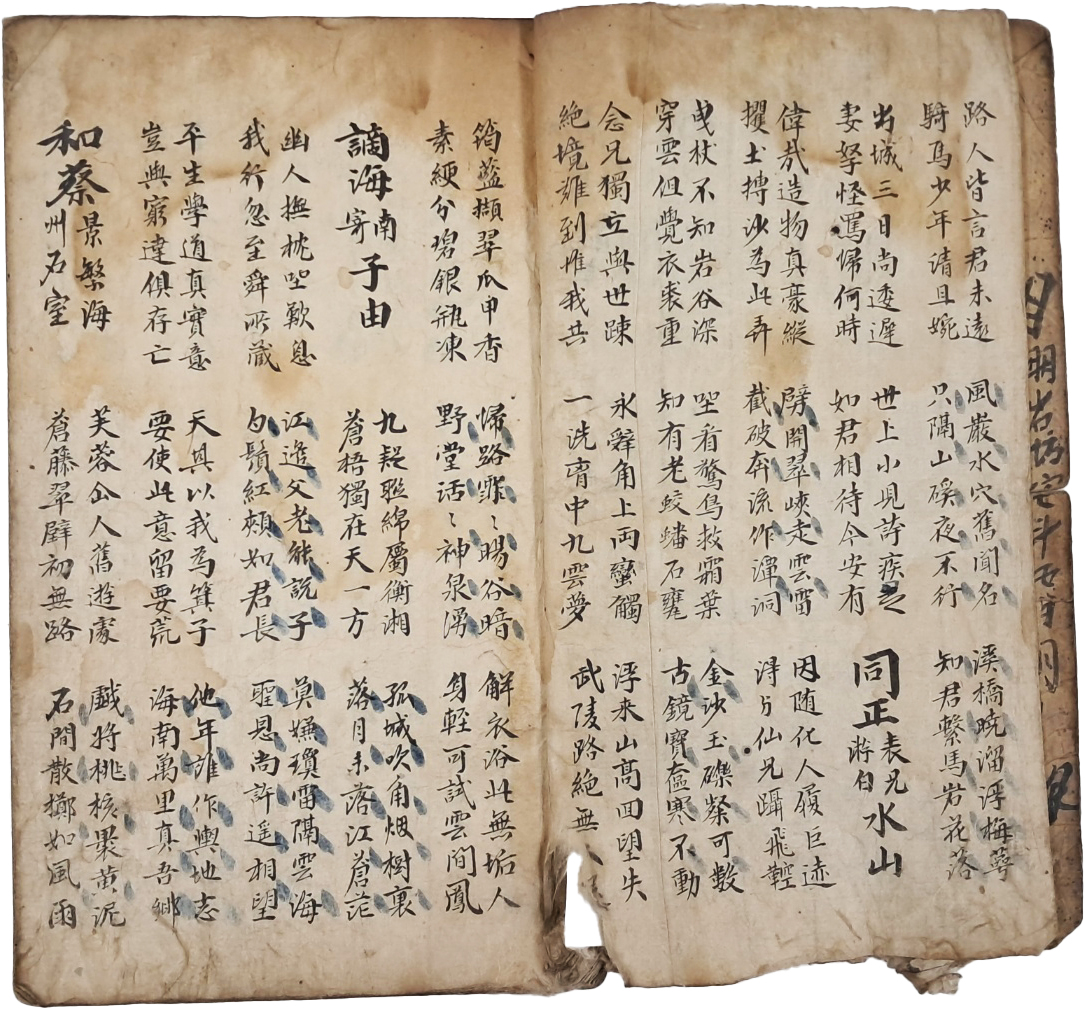 路人皆言君未遠
騎馬少年清且婉
風巖水穴舊聞名
只隔山磎夜不行
溪橋曉溜浮梅萼
知君繫馬岩花落
出城三日尚逶遲
妻孥怪罵歸何時
世上小児誇疾走
如君相待今安有
同正表兄將白水山
偉哉造物真豪縱
攫土摶沙為此弄
劈開翠峽走雲雷
截破奔流作潭洞
因随化人履巨迹
得与仙兄躡飛鞚
曳杖不知岩谷深
穿雲但覺衣裘重
坐看驚鳥救霜葉
知有老蛟蟠石甕
金沙玉礫粲可數
古鏡寶奩寒不動
念兄獨立與世踈
絕境難到惟我共
永辭角上両蠻觸
一洗胷中九雲夢
浮来山高回望失
武陵路絕無
筠籃擷翠爪甲香
素綆分碧銀瓶凍
歸路霏〻暘谷暗
野堂活〻神泉湧
解衣浴此無垢人
身輕可試雲間鳳
謫海南寄子由
九疑聯綿屬衡湘
蒼梧獨在天一方
孤城吹角烟樹裏
落月未落江蒼茫
幽人撫枕坐歎息
我行忽至舜所藏
江邊父老能說子
白鬚紅頰如君長
莫嫌瓊雷隔雲海
聖恩尚許遥相望
平生學道真實意
豈與窮達俱存亡
天其以我為箕子
要使此意留要荒
他年誰作輿地志
海南萬里真吾鄉
和蔡景繁海州石室
芙蓉仚人舊遊處
蒼藤翠壁初無路
戲將桃核裹黄泥
石間散擲如風雨